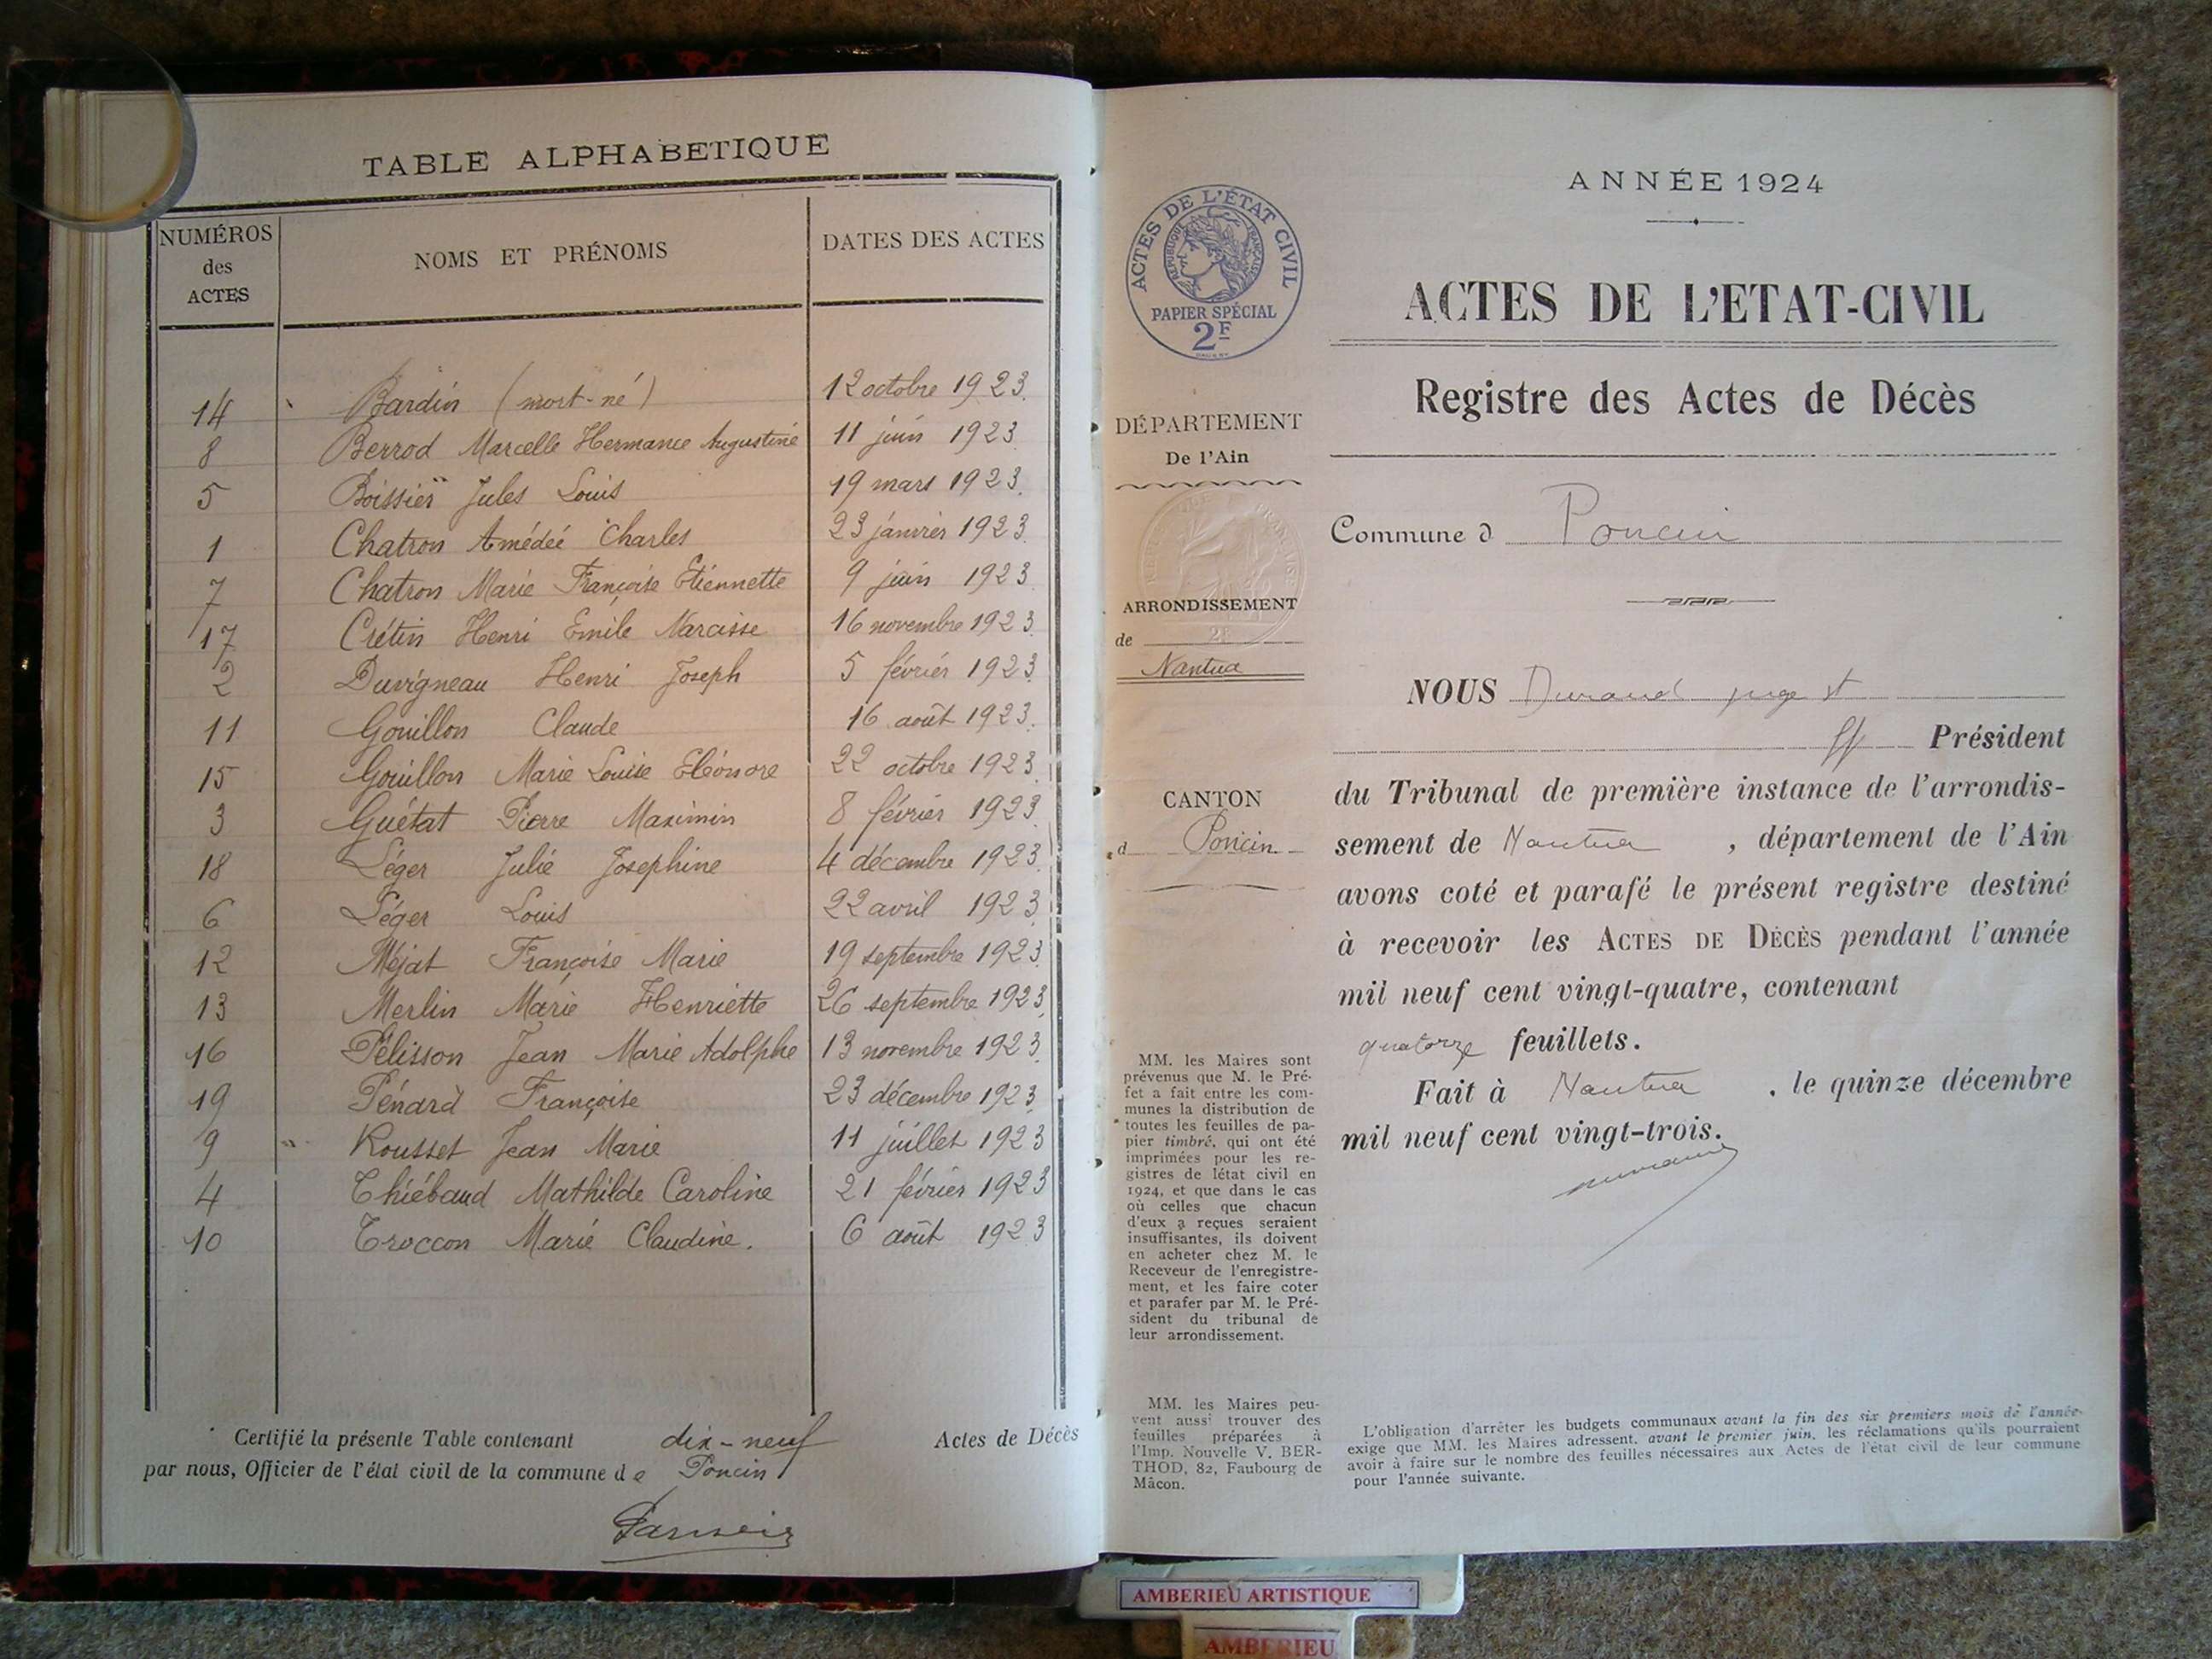 TABLE ALPHABETIQUE
NUMÉROS des ACTES
NOMS ET PRÉNOMS
DATES DES ACTES
14 Bardin (mort-né) 12 octobre 1923.
8 Berrod Marcelle Hermance Augustine 11 juin 1923
5 Boissier Jules Louis 19 mars 1923.
1 Chatron Amédée Charles 23 janvier 1923.
7 Chatron Marie Françoise Etiennette 9 juin 1923
17 Crétin Henri Emile Narcisse 16 novembre 1923.
2 Duvigneau Henri Joseph 5 février 1923
11 Gouillon Claude 16 août 1923.
15 Gouillon Marie Louise Eléonore 22 octobre 1923.
3 Guétat Pierre Maximin 8 février 1923.
18 Léger Julie Josephine 4 décembre 1923.
6 Léger Louis 22 avril 1923.
12 Méjat Françoise Marie 19 septembre 1923.
13 Merlin Marie Henriette 26 septembre 1923.
16 Pélisson Jean Marie Adolphe 13 novembre 1923.
19 Pénard Françoise 23 décembre 1923.
9 Rousset Jean Marie 11 juillet 1923
4 Thiébaud Mathilde Caroline 21 février 1923
10 Troccon Marie Claudine. 6 août 1923
Certifié la présente Table contenant dix-neuf Actes de Décès
par nous, Officier de l'état civil de la commune de Poncin
ACTES DE L'ÉTAT CIVIL
RÉPUBLIQUE FRANÇAISE
PAPIER SPÉCIAL
2F
DÉPARTEMENT
De l'Ain
ARRONDISSEMENT
de
Nantua
CANTON
d Poncin
MM. les Maires sont
prévenus que M. le Pré-
fet a fait entre les com-
munes la distribution de
toutes les feuilles de pa-
pier timbré, qui ont été
imprimées pour les re-
gistres de létat civil en
1924, et que dans le cas
où celles que chacun
d'eux a reçues seraient
insuffisantes, ils doivent
en acheter chez M. le
Receveur de l'enregistre-
ment, et les faire coter
et parafer par M. le Pré-
sident du tribunal de
leur arrondissement.
MM. les Maires peu-
vent aussi trouver des
feuilles préparées à
l'Imp. Nouvelle V. BER-
THOD, 82, Faubourg de
Mâcon.
ANNÉE 1924
ACTES DE L'ETAT-CIVIL
Registre des Actes de Décès
Commune d Poncin
NOUS Durand juge st
ff Président
du Tribunal de première instance de l'arrondis-
sement de Nantua , département de l'Ain
avons coté et parafé le présent registre destiné
à recevoir les ACTES DE DÉCÈS pendant l'année
mil neuf cent vingt-quatre, contenant
quatorze feuillets.
Fait à Nantua , le quinze décembre
mil neuf cent vingt-trois.
L'obligation d'arrêter les budgets communaux avant la fin des six premiers mois de l'année
exige que MM. les Maires adressent, avant le premier juin, les réclamations qu'ils pourraient
avoir à faire sur le nombre des feuilles nécessaires aux Actes de l'état civil de leur commune
pour l'année suivante.
AMBERIEU ARTISTIQUE
AMBERIEU